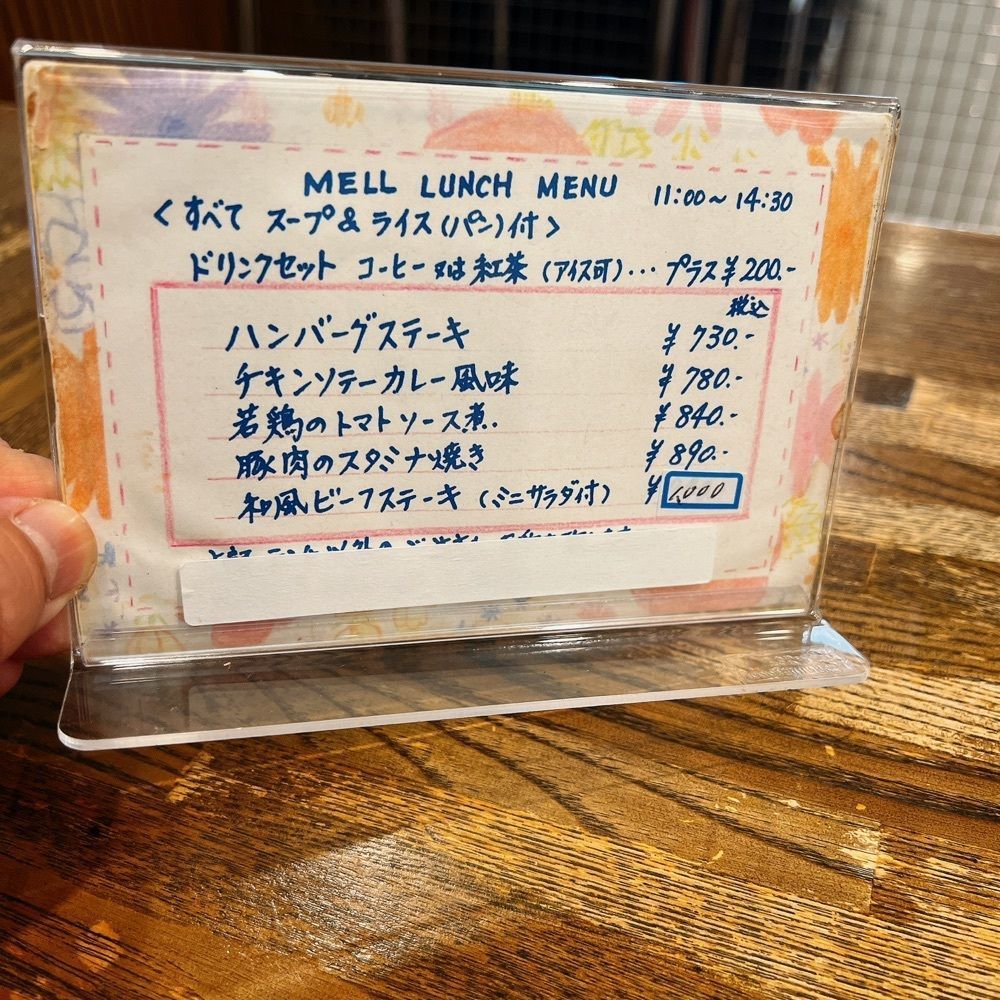 MELL LUNCH MENU 11:00〜14:30
<すべて スープ&ライス(パン)付>
ドリンクセット コーヒー又は紅茶(アイス可)・・・プラス¥200.-
税込
ハンバーグステーキ ¥730.-
チキンソテーカレー風味 ¥780.-
若鶏のトマトソース煮. ¥840.-
豚肉のスタミナ焼き ¥890.-
和風ビーフステーキ(ミニサラダ付) ¥1,000